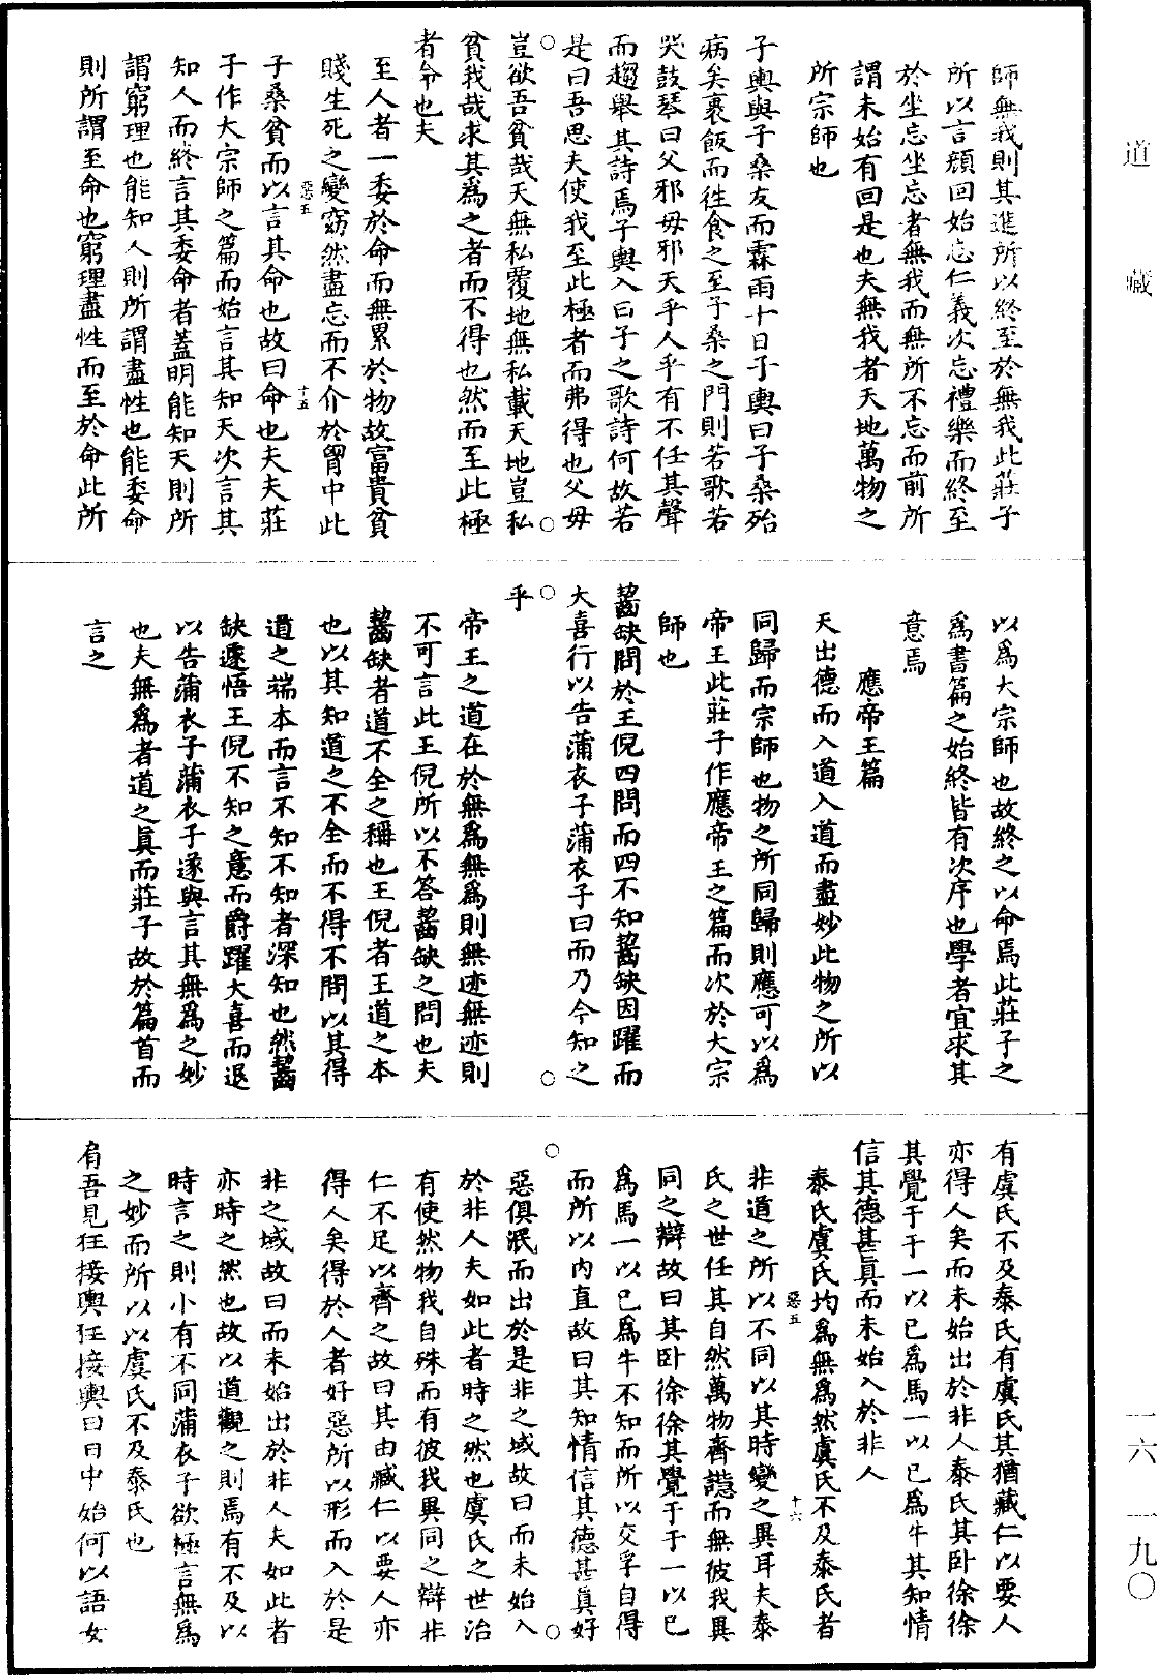 道藏
一六　一九〇
師無我則其進所以終至於無我此莊子
所以言顏回始忘仁義次忘禮樂而終至
於坐忘坐忘者無我而無所不忘而前所
謂未始有回是也夫無我者天地萬物之
所宗師也
子輿與子桑友而霖雨十日子輿曰子桑殆
病矣裹飯而往食之至子桑之門則若歌若
哭鼓琴曰父邪母邪天乎人乎有不任其聲
而趨舉其詩焉子輿入曰子之歌詩何故若
是曰吾思夫使我至此極者而弗得也父母
豈欲吾貧哉天無私覆地無私載天地豈私
貧我哉求其為之者而不得也然而至此極
者命也夫
至人者一委於命而無累於物故富貴貧
賤生死之變窈然盡忘而不介於胷中此
惡五
十五
子桑貧而以言其命也故曰命也夫夫莊
子作大宗師之篇而始言其知天次言其
知人而終言其委命者蓋明能知天則所
謂窮理也能知人則所謂盡性也能委命
則所謂至命也窮理盡性而至於命此所
以為大宗師也故終之以命焉此莊子之
為書篇之始終皆有次序也學者宜求其
意焉
應帝王篇
天出德而入道入道而盡妙此物之所以
同歸而宗師也物之所同歸則應可以為
帝王此莊子作應帝王之篇而次於大宗
師也
齧缺問於王倪四問而四不知齧缺因躍而
大喜行以告蒲衣子蒲衣子曰而乃今知之
乎
帝王之道在於無為無為則無迹無迹則
不可言此王倪所以不答齧缺之問也夫
齧缺者道不全之稱也王倪者王道之本
也以其知道之不全而不得不問以其得
道之端本而言不知不知者深知也然齧
缺遽悟王倪不知之意而爵躍大喜而退
以告蒲衣子蒲衣子遂與言其無為之妙
也夫無為者道之真而莊子故於篇首而
言之
有虞氏不及泰氏有虞氏其猶藏仁以要人
亦得人矣而未始出於非人泰氏其卧徐徐
其覺于于一以已為馬一以已為牛其知情
信其德甚真而未始入於非人
泰氏虞氏均為無為然虞氏不及泰氏者
惡五
十六
非道之所以不同以其時變之異耳夫泰
氏之世任其自然萬物齊諧而無彼我異
同之辯故曰其卧徐徐其覺于于一以已
為馬一以已為牛不知而所以交孚自得
而所以內直故曰其知情信其德甚真好
惡俱泯而出於是非之域故曰而未始入
於非人夫如此者時之然也虞氏之世治
有使然物我自殊而有彼我異同之辯非
仁不足以齊之故曰其由藏仁以要人亦
得人矣得於人者好惡所以形而入於是
非之域故曰而未始出於非人夫如此者
亦時之然也故以道觀之則焉有不及以
時言之則小有不同蒲衣子欲極言無為
之妙而所以以虞氏不及泰氏也
肩吾見狂接輿狂接輿曰日中始何以語女